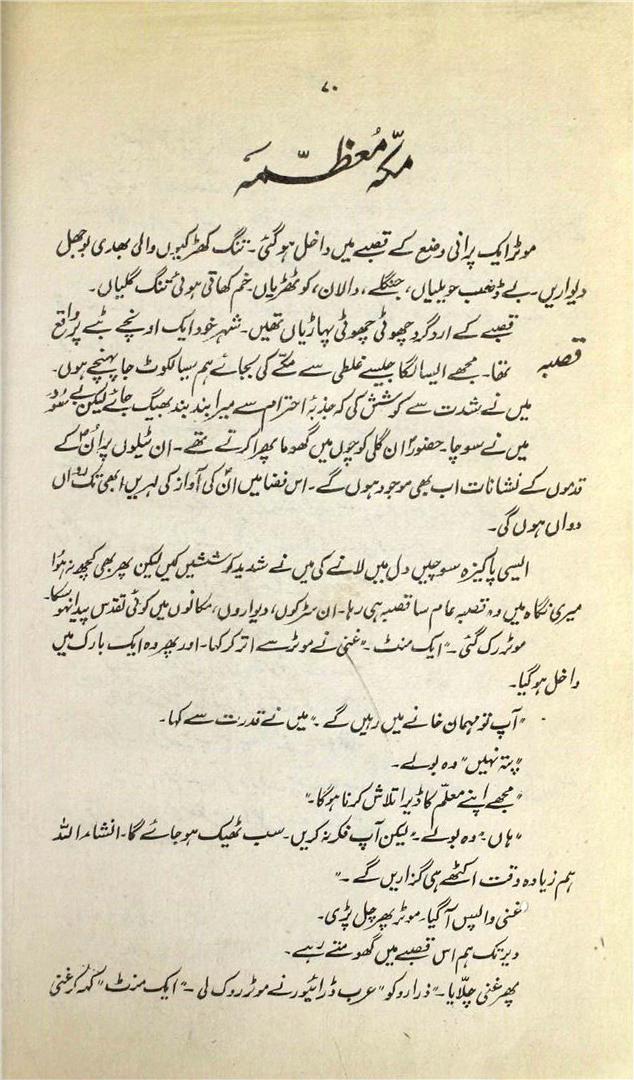 ۷۰
مکّہ مُعظّمہ
موٹر ایک پرانی وضع کے قصبے میں داخل ہو گئی۔ تنگ کھڑکیوں والی بھدی بوجھل
دیواریں۔ بے ڈھب حویلیاں، جنگلے، دالان، کوٹھڑیاں۔ خم کھاتی ہوئی تنگ گلیاں۔
قصبے کے ارد گرد چھوٹی چھوٹی پہاڑیاں تھیں۔ شہر خود ایک اونچے ٹبے پر واقع
قصبہ
تھا۔ مجھے ایسا لگا جیسے غلطی سے مکّے کی بجائے ہم سیالکوٹ جا پہنچے ہوں۔
میں نے شدت سے کوشش کی کہ جذبۂ احترام سے میرا بند بند بھیگ جائے لیکن بے سُود
میں نے سوچا۔ حضورؐ ان گلی کوچوں میں گھوما پھرا کرتے تھے۔ ان ٹیلوں پر اُنؐ کے
قدموں کے نشانات اب بھی موجود ہوں گے۔ اس فضا میں انؐ کی آواز کی لہریں ابھی تک رواں
دواں ہوں گی۔
ایسی پاکیزہ سوچیں دل میں لانے کی میں نے شدید کوششیں کیں لیکن پھر بھی کچھ نہ ہُوا
میری نگاہ میں وہ قصبہ عام سا قصبہ ہی رہا۔ ان سڑکوں، دیواروں، مکانوں میں کوئی تقدس پیدا نہ ہو سکا۔
موٹر رک گئی۔ "ایک منٹ۔" غنی نے موٹر سے اتر کر کہا۔ اور پھر وہ ایک بارک میں
داخل ہو گیا۔
"آپ تو مہمان خانے میں رہیں گے۔" میں نے قدرت سے کہا۔
"پتہ نہیں" وہ بولے۔
"مجھے اپنے معلّم کا ڈیرا تلاش کرنا ہوگا۔"
"ہاں۔" وہ بولے۔ "لیکن آپ فکر نہ کریں۔ سب ٹھیک ہو جائے گا۔ انشاء اللہ
ہم زیادہ وقت اکٹھے ہی گزاریں گے۔"
غنی واپس آ گیا۔ موٹر پھر چل پڑی۔
دیر تک ہم اس قصبے میں گھومتے رہے۔
پھر غنی چلّایا۔ "ذرا روکو" عرب ڈرائیور نے موٹر روک لی۔ "ایک منٹ" کہہ کر غنی